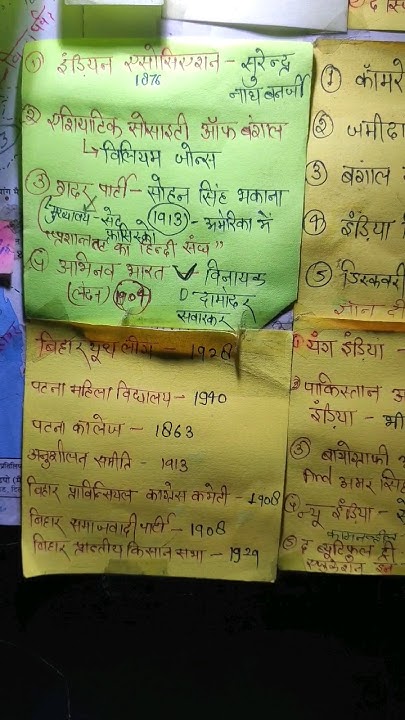 ① इंडियन एसोसिएशन - सुरेन्द्र
1876 नाथ बनर्जी
② एशियाटिक सोसाइटी ऑफ बंगाल
↳ विलियम जोन्स
③ गदर पार्टी - सोहन सिंह भकाना
(मुख्यालय - सेन (1913) - अमेरिका में
फ्रांसिस्को
का हिन्दी संघ"
④ अभिनव भारत ✓ - विनायक
(लंदन) (1904) दामोदर
सावरकर
बिहार यूथ लीग - 1928
पटना महिला विद्यालय - 1940
पटना कॉलेज - 1863
अनुशीलन समीति - 1913
बिहार प्राविन्सियल कांग्रेस कमेटी - 1908
बिहार समाजवादी पार्टी - 1908
बिहार प्रांतीय किसान सभा - 1929
① कॉमरे
② जमींदा
③ बंगाल
④ इंडिया
⑤ डिस्कवरी
① यंग इंडिया -
② पाकिस्तान अ
इंडिया - भी
③
④ न्यू इंडिया -
⑤ द ब्यूटिफुल ट्री